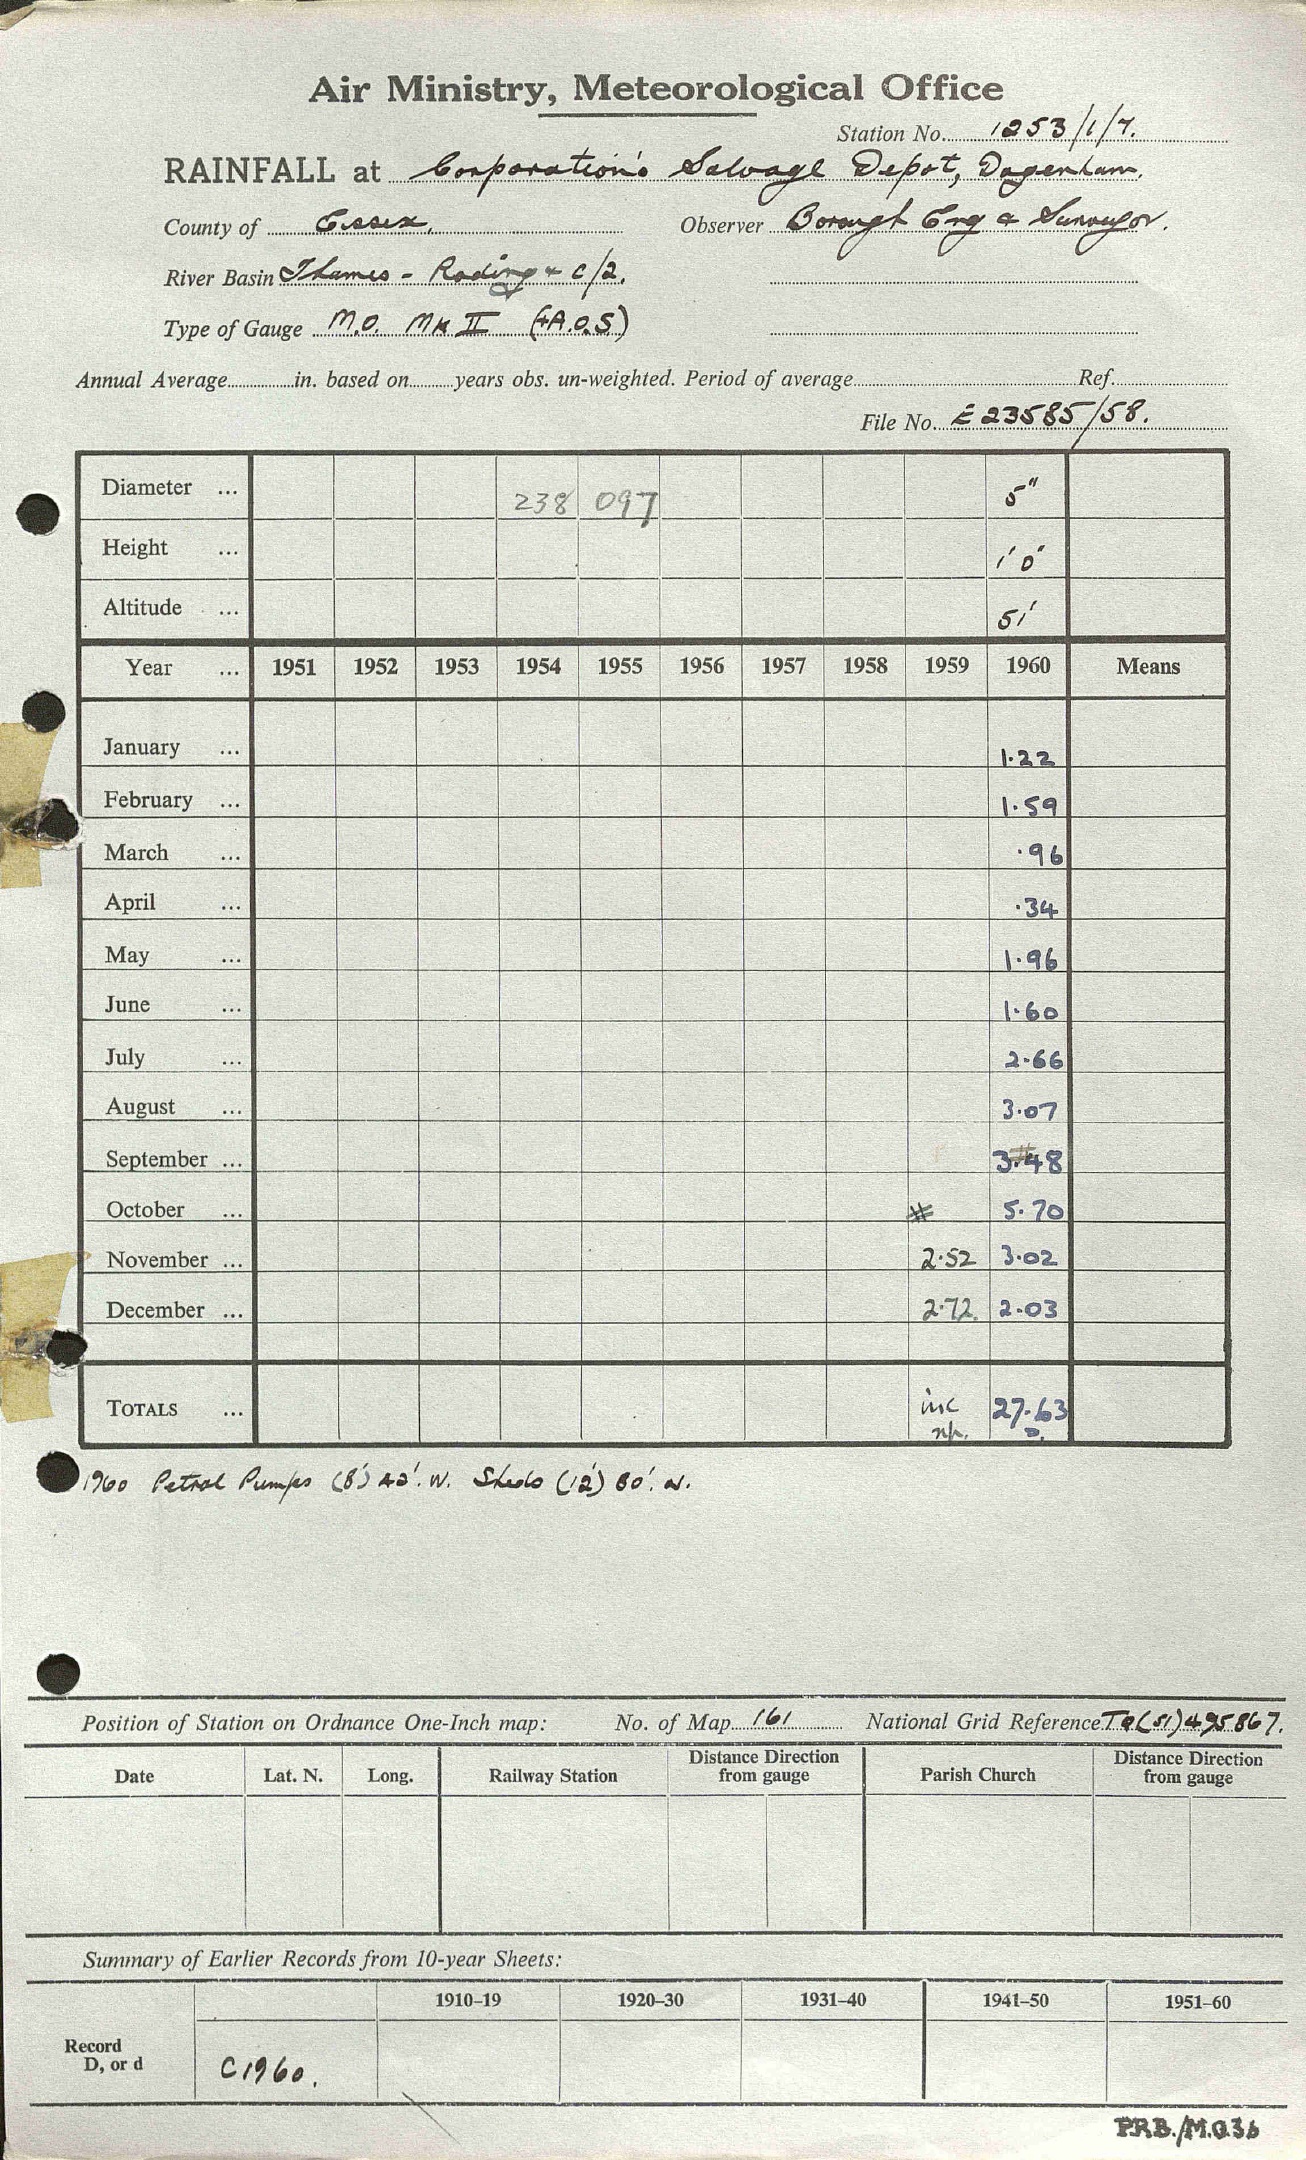 Air Ministry, Meteorological Office
Station No. 1253/1/7.
RAINFALL at Corporation's Salvage Depot, Dagenham.
County of Essex. Observer Borough Eng & Surveyor.
River Basin Thames - Roding & C/2.
Type of Gauge M.O. Mk II (+A.O.S)
Annual Average in. based on years obs. un-weighted. Period of average Ref.
File No. E 23585/58.
Diameter ... 238 097 5"
Height ... 1' 0"
Altitude ... 51'
Year ... 1951 1952 1953 1954 1955 1956 1957 1958 1959 1960 Means
January ... 1.22
February ... 1.59
March ... .96
April ... .34
May ... 1.96
June ... 1.60
July ... 2.66
August ... 3.07
September ... 3.48
October ... # 5.70
November ... 2.52 3.02
December ... 2.72. 2.03
TOTALS ... inc 27.63
np. D.
1960 Petrol Pumps (8') 42'. W. Sheds (12') 80'.
Position of Station on Ordnance One-Inch map: No. of Map 161 National Grid Reference TQ(51)495867.
Date Lat. N. Long. Railway Station Distance Direction from gauge Parish Church Distance Direction from gauge
Summary of Earlier Records from 10-year Sheets:
1910–19 1920–30 1931–40 1941–50 1951–60
Record
D, or d C1960.
P.R.B./M.O.3b